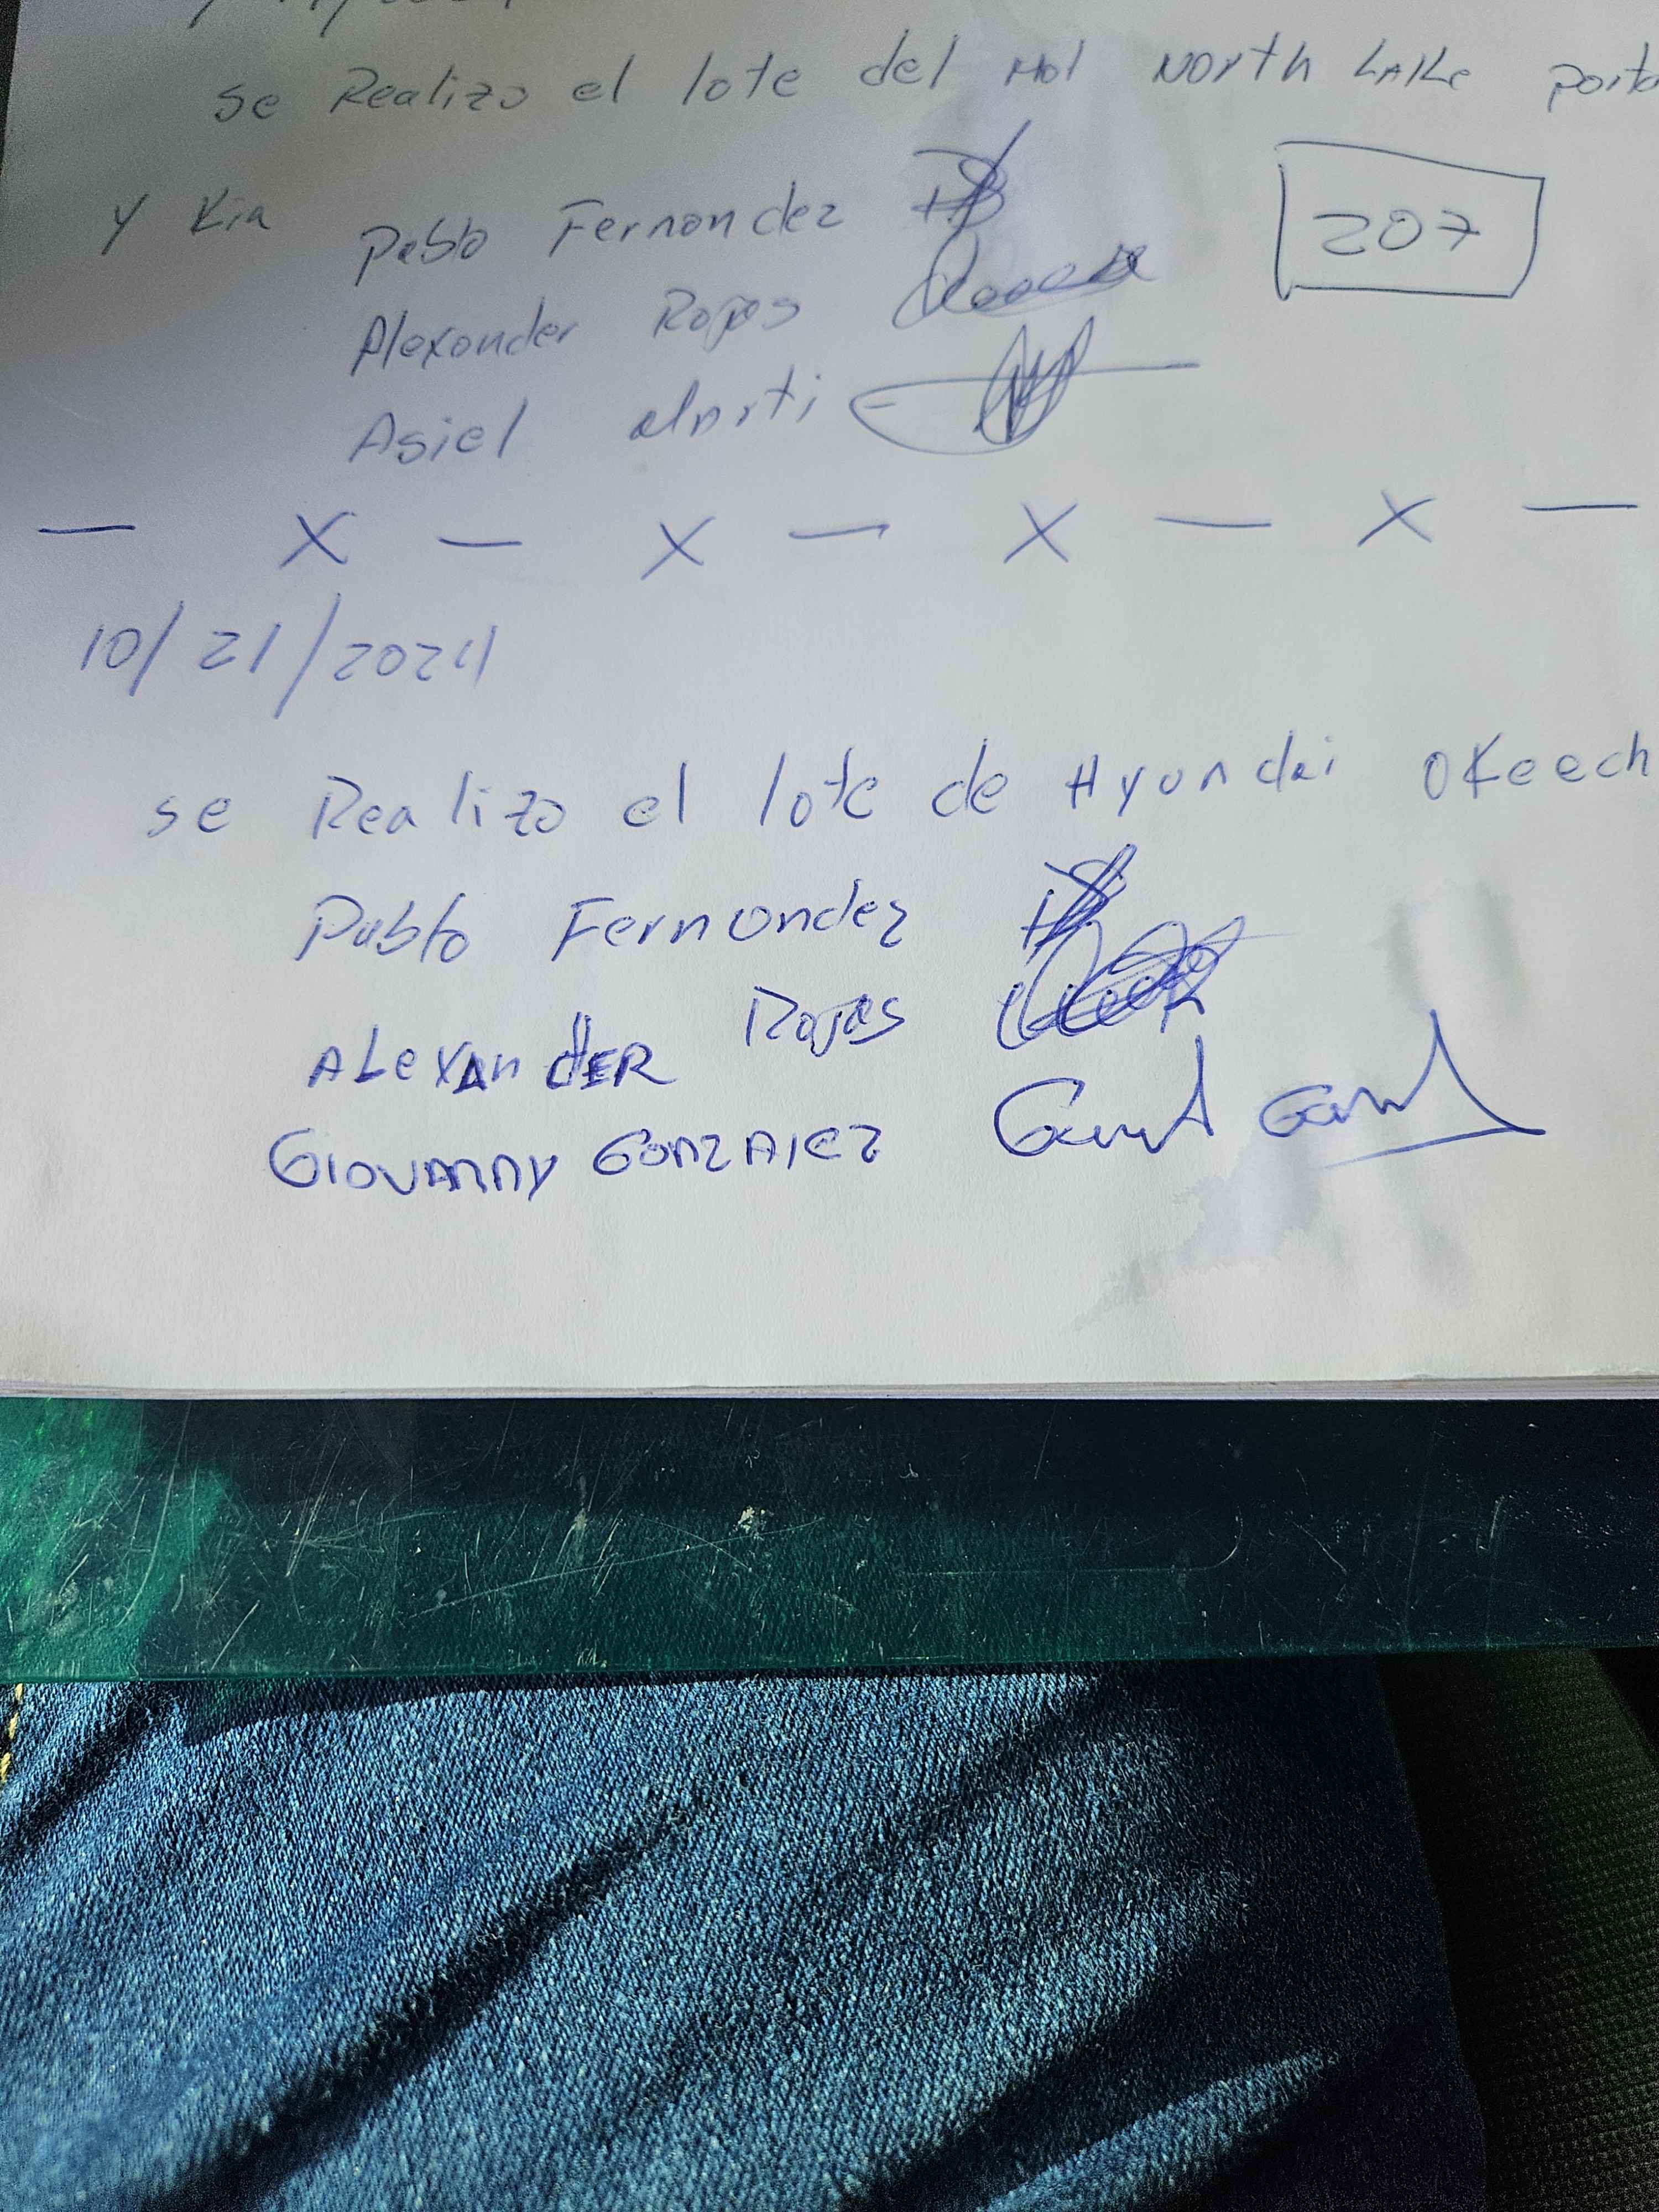 se Realizo el lote del Mol North Lake
y Kia
Pablo Fernandez
207
Alexander Rojas
Asiel Marti
— X — X — X — X —
10/21/2024
se Realizo el lote de Hyundai OKeech
Pablo Fernandez
ALexAnDER Rojas
GIOVANNY GONZALEZ